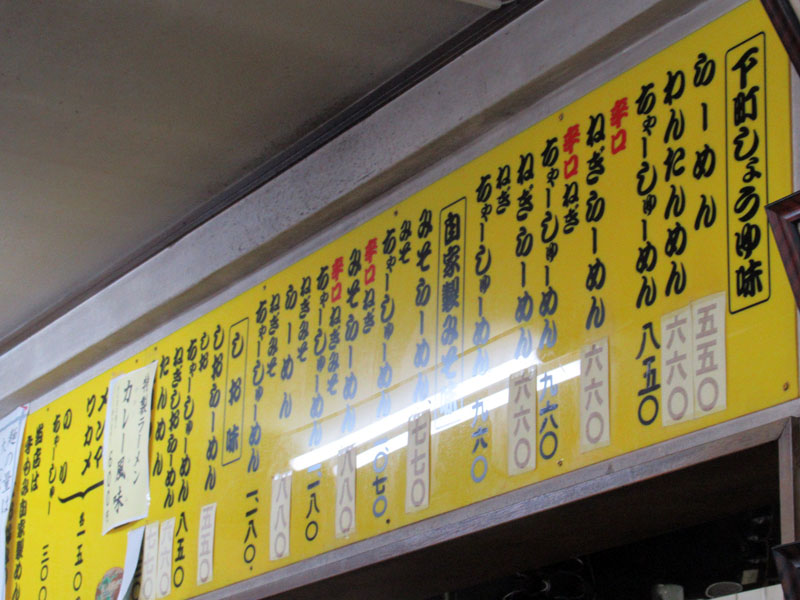 下町しょうゆ味
らーめん 五五〇
わんたんめん 六六〇
ちゃーしゅーめん 八五〇
辛口ねぎらーめん 六六〇
辛口ねぎちゃーしゅーめん 九六〇
ねぎらーめん 六六〇
ねぎちゃーしゅーめん 九六〇
自家製みそ
みそらーめん 七七〇
みそちゃーしゅーめん 一、〇七〇
辛口ねぎみそらーめん 八八〇
辛口ねぎみそちゃーしゅーめん 一、一八〇
ねぎみそらーめん 八八〇
ねぎみそちゃーしゅーめん 一、一八〇
しお味
しおらーめん 五五〇
しおちゃーしゅーめん 八五〇
ねぎしおらーめん 六六〇
たんめん
特製ラーメン
カレー風味
メンマ
ワカメ
のり
各一五〇
ちゃーしゅー 三〇〇
当店は
自家製めん